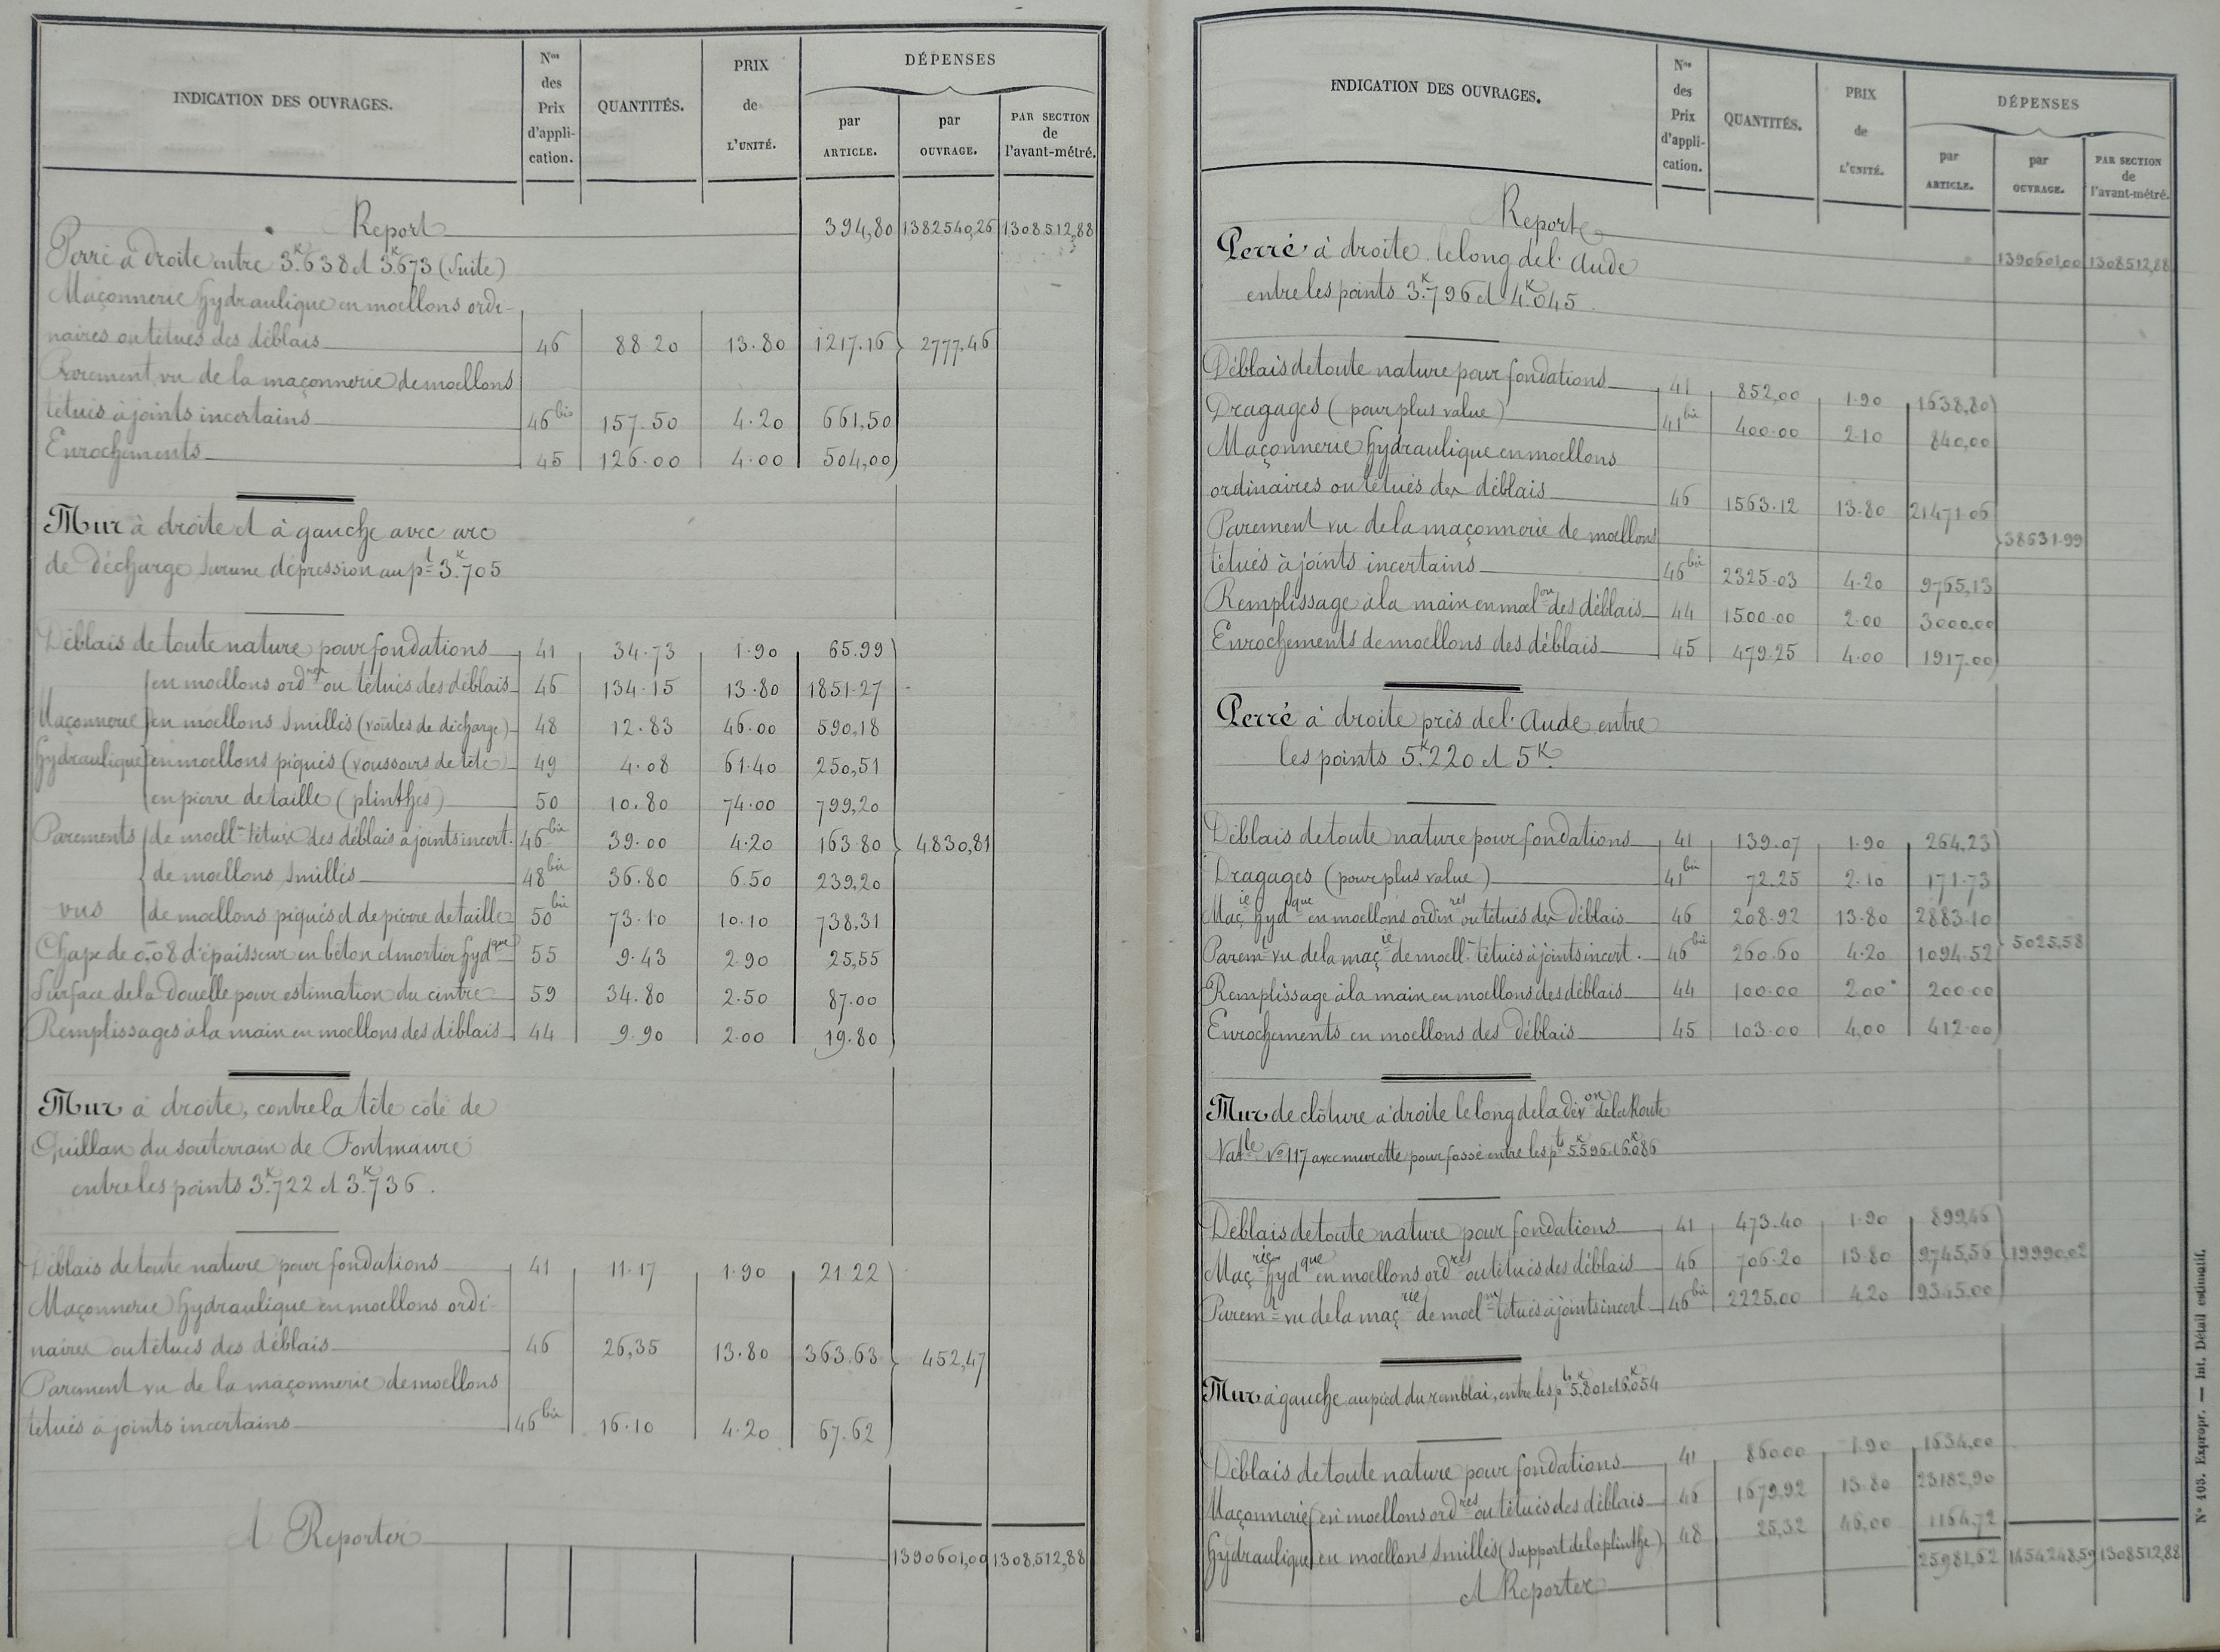 INDICATION DES OUVRAGES.
Nos des Prix d'appli-cation.
QUANTITÉS.
PRIX de L'UNITÉ.
DÉPENSES
par ARTICLE.
par OUVRAGE.
PAR SECTION de l'avant-métré.
Report 394,80 1382540,26 1308512,88
Perré à droite entre 3K.638 et 3K.673 (Suite)
Maçonnerie hydraulique en moellons ordi-
naires ou têtués des déblais 46 88.20 13.80 1217.16 2777.46
Parement vu de la maçonnerie de moellons
têtués à joints incertains 46bis 157.50 4.20 661,50
Enrochements 45 126.00 4.00 504,00
Mur à droite et à gauche avec arc
de décharge sur une dépression au pt 3K.705
Déblais de toute nature pour fondations 41 34.73 1.90 65.99
Maçonnerie hydraulique
en moellons ordres ou têtués des déblais 46 134.15 13.80 1851.27
en moellons smillés (voûtes de décharge) 48 12.83 46.00 590,18
en moellons piqués (voussoirs de tête) 49 4.08 61.40 250,51
en pierre de taille (plinthes) 50 10.80 74.00 799,20
Parements vus
de moellns têtués des déblais à joints incert. 46bis 39.00 4.20 163.80 4830,81
de moellons smillés 48bis 36.80 6.50 239,20
de moellons piqués et de pierre de taille 50bis 73.10 10.10 738,31
Chape de 0,08 d'épaisseur en béton et mortier hydque 55 9.43 2.90 25,55
Surface de la douelle pour estimation du cintre 59 34.80 2.50 87.00
Remplissages à la main en moellons des déblais 44 9.90 2.00 19.80
Mur à droite, contre la tête côté de
Quillan du souterrain de Fontmaure
entre les points 3K.722 et 3K.736.
Déblais de toute nature pour fondations 41 11.17 1.90 21.22
Maçonnerie hydraulique en moellons ordi-
naires ou têtués des déblais 46 26,35 13.80 363.63 452,47
Parement vu de la maçonnerie de moellons
têtués à joints incertains 46bis 16.10 4.20 67.62
A Reporter 1390601,00 1308512,88
INDICATION DES OUVRAGES.
Nos des Prix d'appli-cation.
QUANTITÉS.
PRIX de L'UNITÉ.
DÉPENSES
par ARTICLE.
par OUVRAGE.
PAR SECTION de l'avant-métré.
Report 1390601,00 1308512,88
Perré à droite le long de l'Aude
entre les points 3K.796 et 4K.045.
Déblais de toute nature pour fondations 41 852,00 1.90 1638,80
Dragages (pour plus value) 41bis 400.00 2.10 840,00
Maçonnerie hydraulique en moellons
ordinaires ou têtués des déblais 46 1563.12 13.80 21471.06
Parement vu de la maçonnerie de moellons 38631.99
têtués à joints incertains 46bis 2325.03 4.20 9765,13
Remplissage à la main en moelons des déblais 44 1500.00 2.00 3000.00
Enrochements de moellons des déblais 45 479.25 4.00 1917.00
Perré à droite près de l'Aude entre
les points 5K.220 et 5K.
Déblais de toute nature pour fondations 41 139.07 1.90 264,23
Dragages (pour plus value) 41bis 72.25 2.10 171.73
Maçie hydque en moellons ordinres ou têtués des déblais 46 208.92 13.80 2883.10
Paremt vu de la maçie de moells têtués à joints incert. 46bis 260.60 4.20 1094.52 5025,58
Remplissage à la main en moellons des déblais 44 100.00 2.00 200.00
Enrochements en moellons des déblais 45 103.00 4,00 412.00
Mur de clôture à droite le long de la dévon de la Route
Natle No 117 avec murette pour fossé entre les pts 5K.596 et 6K.086
Déblais de toute nature pour fondations 41 473.40 1.90 899,46
Maçrie hydque en moellons ordres ou têtués des déblais 46 706.20 13.80 9745,56 19990.02
Paremt vu de la maçrie de moelns têtués à joints incert 46bis 2225.00 4.20 9345.00
Mur à gauche au pied du remblai, entre les pts 5K.801 et 6K.054
Déblais de toute nature pour fondations 41 860.00 1.90 1634,00
Maçonnerie hydraulique
en moellons ordres ou têtués des déblais 46 1679.92 13.80 23182,90
en moellons smillés (support de la plinthe) 48 25,32 46,00 1164.72
A Reporter 25981,62 1454248,59 1308512,88
No 103. Expropr. — Int. Détail estimatif.